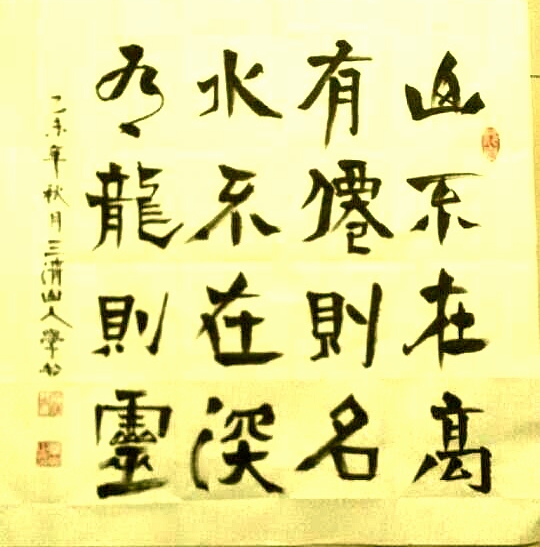 山不在高
有僊則名
水不在深
有龍則靈
乙未年秋月三清山人學書